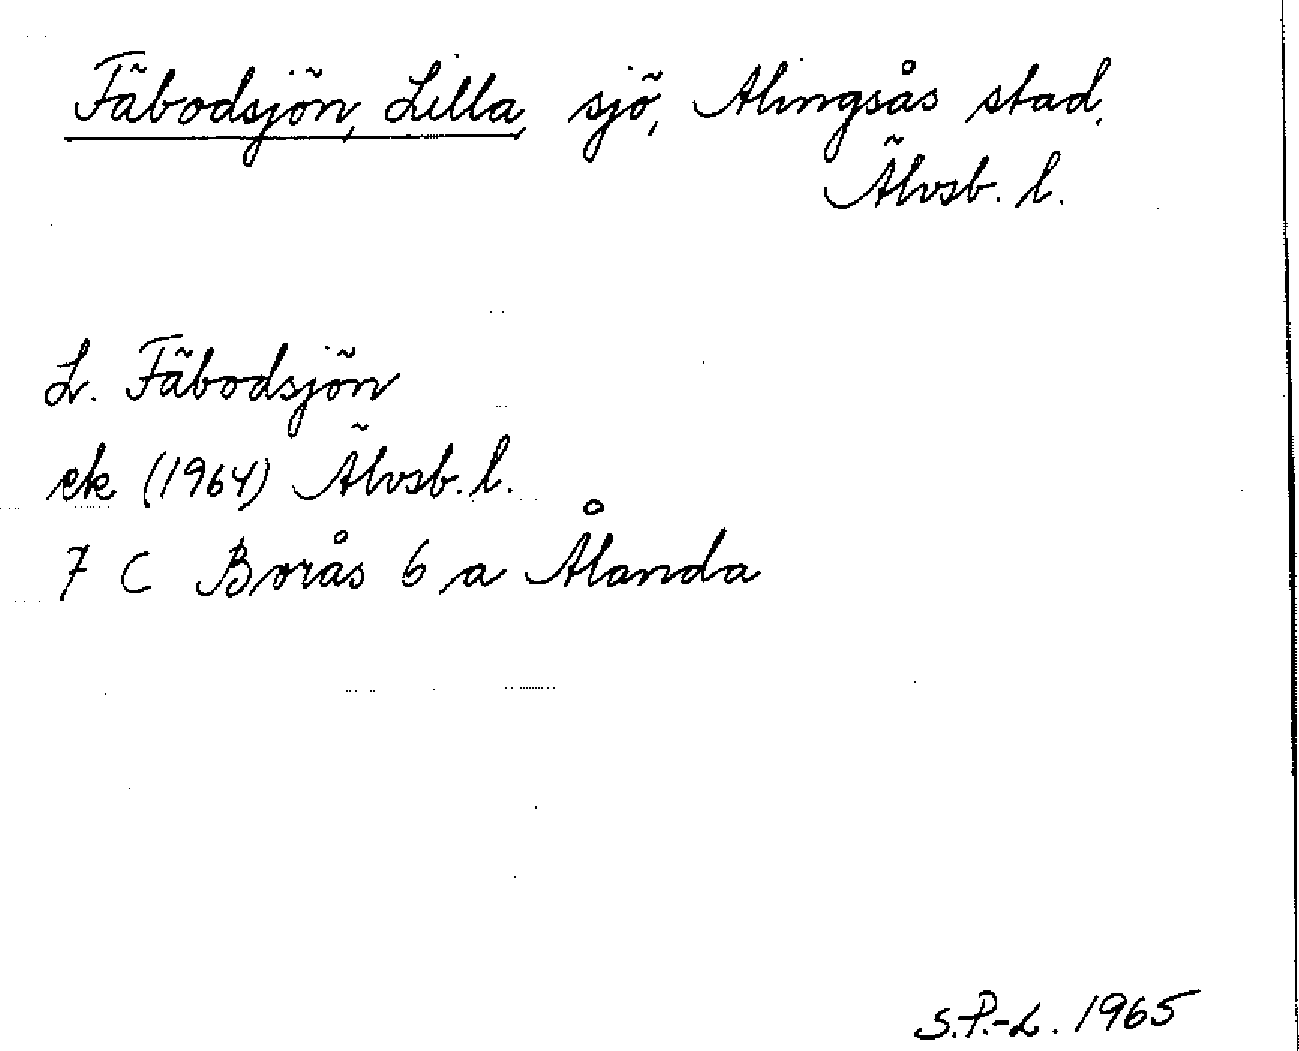 Fäbodsjön, Lilla, sjö, Alingsås stad,
Älvsb. l.
L. Fäbodsjön
ek (1964) Älvsb. l.
7 C Borås 6 a Ålanda
S.P.-L. 1965